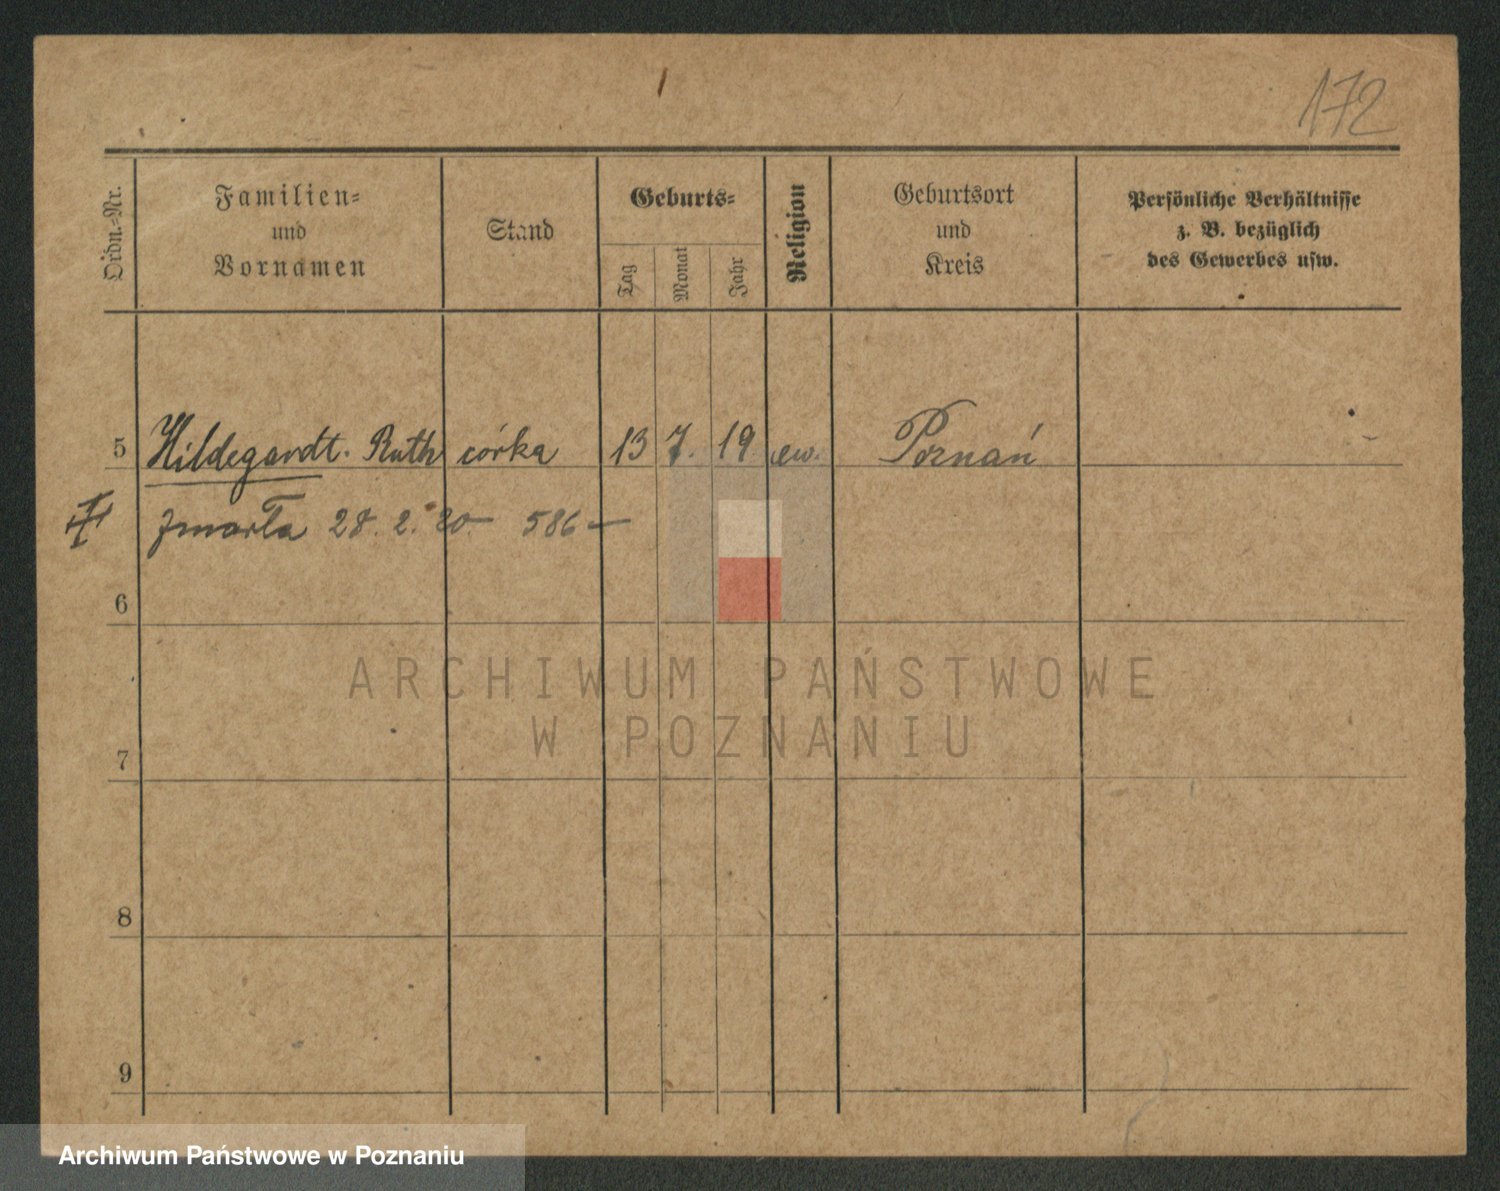 172
Ordn.-Nr.
Familien-
und
Vornamen
Stand
Geburts-
Tag
Monat
Jahr
Religion
Geburtsort
und
Kreis
Persönliche Verhältnisse
z. B. bezüglich
des Gewerbes usw.
5 Hildegardt. Ruth córka 13 7. 19. ew. Poznań
zmarła 28. 2. 20 - 586 -
6
7
8
9
ARCHIWUM PAŃSTWOWE
W POZNANIU
Archiwum Państwowe w Poznaniu